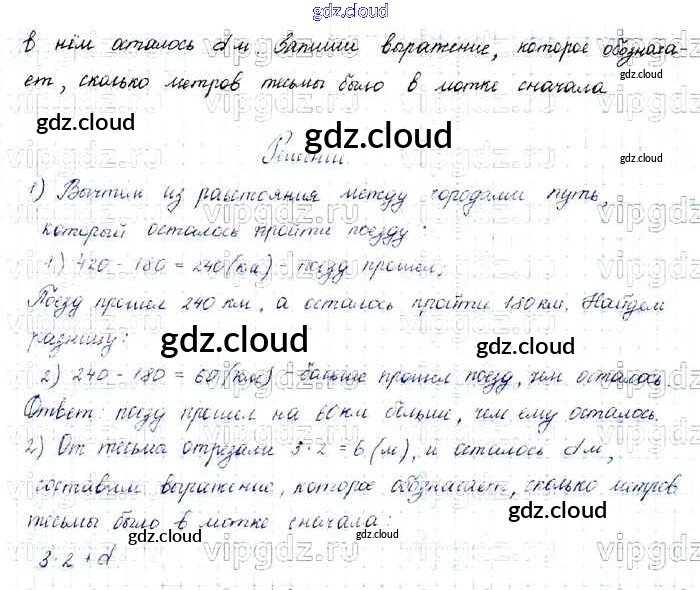 gdz.cloud
в нём осталось d м. Запиши выражение, которое обознача-
ет, сколько метров тесьмы было в мотке сначала
Решение.
1) Вычтем из расстояния между городами путь,
который осталось пройти поезду:
1) 420 - 180 = 240 (км) - поезд прошел;
Поезд прошел 240 км, а осталось пройти 180 км. Найдем
разницу:
2) 240 - 180 = 60 (км) - больше прошел поезд, чем осталось.
Ответ: поезд прошел на 60 км больше, чем ему осталось.
2) От тесьма отрезали 3·2 = 6 (м), и осталось d м,
составим выражение, которое обозначает, сколько метров
тесьмы было в мотке сначала:
3·2 + d